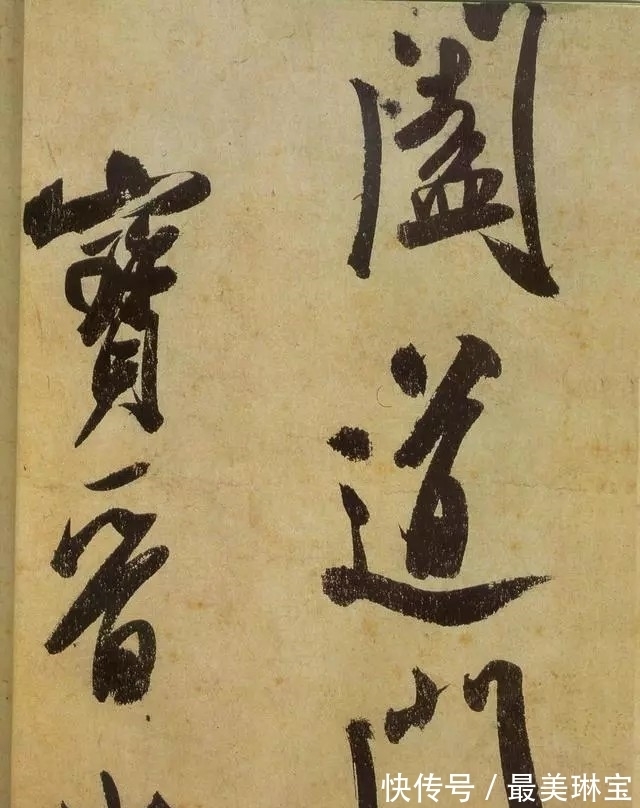 闔道門
寶晋
快传号 / 最美琳宝